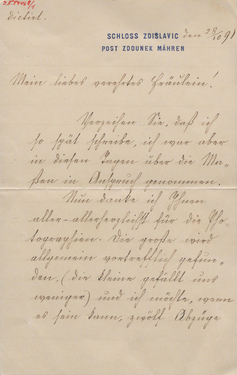 dictirt.
SCHLOSS ZDISLAVIC
POST ZDOUNEK MÄHREN
den 28/10 91
Mein liebes verehrtes Fräulein!
Verzeihen Sie, daß ich
so spät schreibe, ich war aber
in diesen Tagen über die Ma-
ßen in Anspruch genommen.
Nun danke ich Ihnen
aller-allerherzlichst für die Pho-
tographien. Die große wird
allgemein vortrefflich gefun-
den, (die kleine gefällt uns
weniger) und ich möchte, wenn
es sein kann, zwölf Abzüge